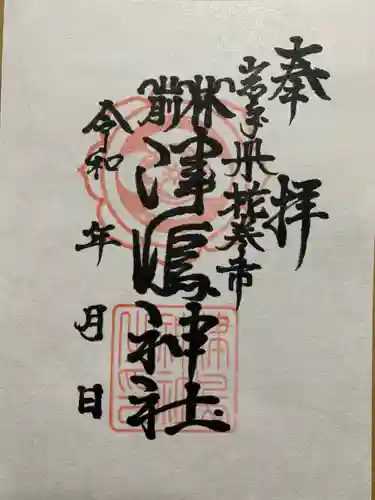 奉拝
岩手県花巻市
林前
津嶋神社
令和 年 月 日